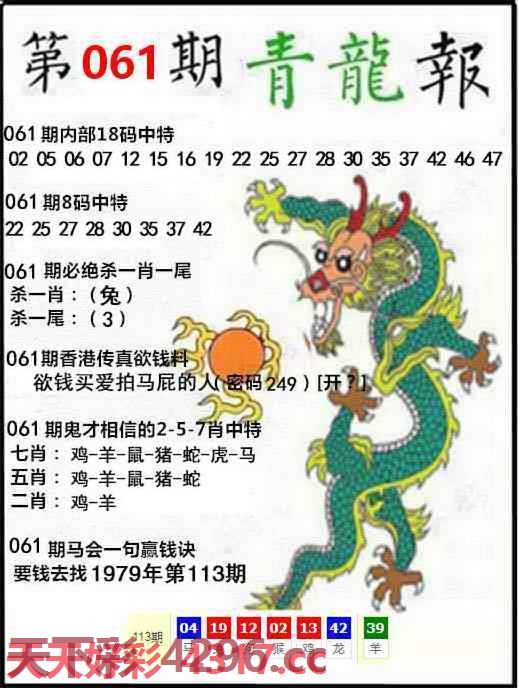 第061期 青龍報
061期内部18码中特
02 05 06 07 12 15 16 19 22 25 27 28 30 35 37 42 46 47
061期8码中特
22 25 27 28 30 35 37 42
061期必绝杀一肖一尾
杀一肖：（兔）
杀一尾：（3）
061期香港传真欲钱料
欲钱买爱拍马屁的人(密码249)[开？]
061期鬼才相信的2-5-7肖中特
七肖：鸡-羊-鼠-猪-蛇-虎-马
五肖：鸡-羊-鼠-猪-蛇
二肖：鸡-羊
061期马会一句赢钱诀
要钱去找1979年第113期
113期 04 19 12 02 13 42 39
马 猴 鸡 龙 羊